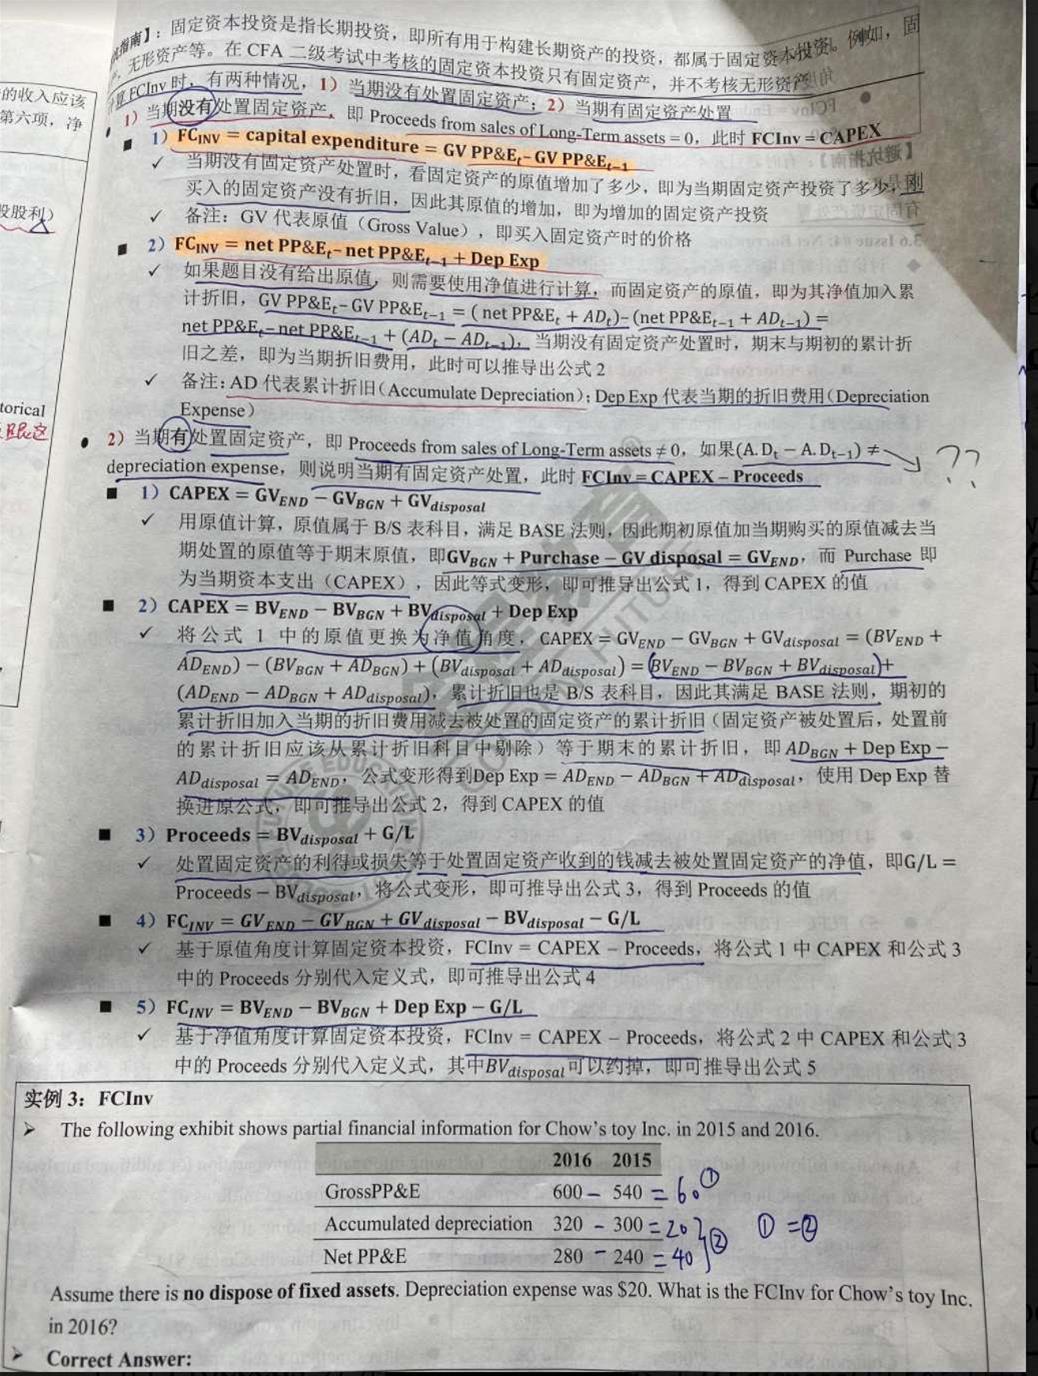 指南】：固定资本投资是指长期投资，即所有用于构建长期资产的投资，都属于固定资本投资。例如，固
无形资产等。在 CFA 二级考试中考核的固定资本投资只有固定资产，并不考核无形资产
算 FCInv 时，有两种情况，1）当期没有处置固定资产；2）当期有固定资产处置
的收入应该
第六项，净
股股利）
torical
1）当期没有处置固定资产，即 Proceeds from sales of Long-Term assets = 0，此时 FCInv = CAPEX
1）FCINV = capital expenditure = GV PP&Et − GV PP&Et−1
✓ 当期没有固定资产处置时，看固定资产的原值增加了多少，即为当期固定资产投资了多少，刚
买入的固定资产没有折旧，因此其原值的增加，即为增加的固定资产投资
✓ 备注：GV 代表原值（Gross Value），即买入固定资产时的价格
2）FCINV = net PP&Et − net PP&Et−1 + Dep Exp
✓ 如果题目没有给出原值，则需要使用净值进行计算，而固定资产的原值，即为其净值加入累
计折旧，GV PP&Et − GV PP&Et−1 = ( net PP&Et + ADt) − (net PP&Et−1 + ADt−1) =
net PP&Et − net PP&Et−1 + (ADt − ADt−1)，当期没有固定资产处置时，期末与期初的累计折
旧之差，即为当期折旧费用，此时可以推导出公式 2
✓ 备注：AD 代表累计折旧（Accumulate Depreciation）；Dep Exp 代表当期的折旧费用（Depreciation
Expense）
2）当期有处置固定资产，即 Proceeds from sales of Long-Term assets ≠ 0，如果(A. Dt − A. Dt−1) ≠ ??
depreciation expense，则说明当期有固定资产处置，此时 FCInv = CAPEX − Proceeds
1）CAPEX = GVEND − GVBGN + GVdisposal
✓ 用原值计算，原值属于 B/S 表科目，满足 BASE 法则，因此期初原值加当期购买的原值减去当
期处置的原值等于期末原值，即GVBGN + Purchase − GV disposal = GVEND，而 Purchase 即
为当期资本支出（CAPEX），因此等式变形，即可推导出公式 1，得到 CAPEX 的值
2）CAPEX = BVEND − BVBGN + BVdisposal + Dep Exp
✓ 将公式 1 中的原值更换为净值角度，CAPEX = GVEND − GVBGN + GVdisposal = (BVEND +
ADEND) − (BVBGN + ADBGN) + (BVdisposal + ADdisposal) = (BVEND − BVBGN + BVdisposal) +
(ADEND − ADBGN + ADdisposal)，累计折旧也是 B/S 表科目，因此其满足 BASE 法则，期初的
累计折旧加入当期的折旧费用减去被处置的固定资产的累计折旧（固定资产被处置后，处置前
的累计折旧应该从累计折旧科目中剔除）等于期末的累计折旧，即 ADBGN + Dep Exp −
ADdisposal = ADEND，公式变形得到Dep Exp = ADEND − ADBGN + ADdisposal，使用 Dep Exp 替
换进原公式，即可推导出公式 2，得到 CAPEX 的值
3）Proceeds = BVdisposal + G/L
✓ 处置固定资产的利得或损失等于处置固定资产收到的钱减去被处置固定资产的净值，即G/L =
Proceeds − BVdisposal，将公式变形，即可推导出公式 3，得到 Proceeds 的值
4）FCINV = GVEND − GVBGN + GVdisposal − BVdisposal − G/L
✓ 基于原值角度计算固定资本投资，FCInv = CAPEX − Proceeds，将公式 1 中 CAPEX 和公式 3
中的 Proceeds 分别代入定义式，即可推导出公式 4
5）FCINV = BVEND − BVBGN + Dep Exp − G/L
✓ 基于净值角度计算固定资本投资，FCInv = CAPEX − Proceeds，将公式 2 中 CAPEX 和公式 3
中的 Proceeds 分别代入定义式，其中BVdisposal可以约掉，即可推导出公式 5
实例 3：FCInv
➢ The following exhibit shows partial financial information for Chow's toy Inc. in 2015 and 2016.
2016 2015
GrossPP&E 600 − 540 = 60 ①
Accumulated depreciation 320 − 300 = 20 ② ① = ②
Net PP&E 280 − 240 = 40
Assume there is no dispose of fixed assets. Depreciation expense was $20. What is the FCInv for Chow's toy Inc.
in 2016?
➢ Correct Answer: